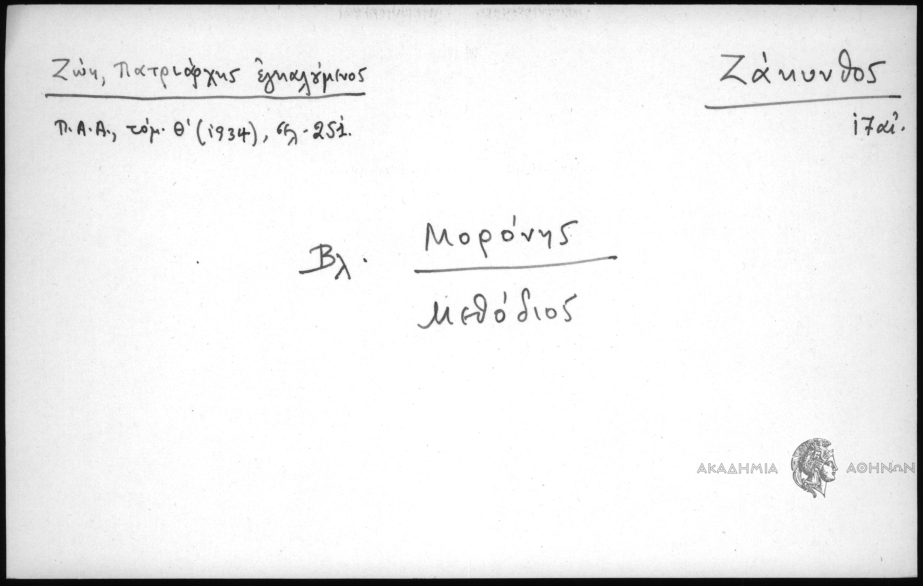 Ζώη, Πατριάρχης ἐγκαλούμενος
Π.Α.Α., τόμ. Θ' (1934), σελ. 251.
Ζάκυνθος
17 αἰ.
Βλ. Μορόνης
Μεθόδιος
ΑΚΑΔΗΜΙΑ ΑΘΗΝΩΝ